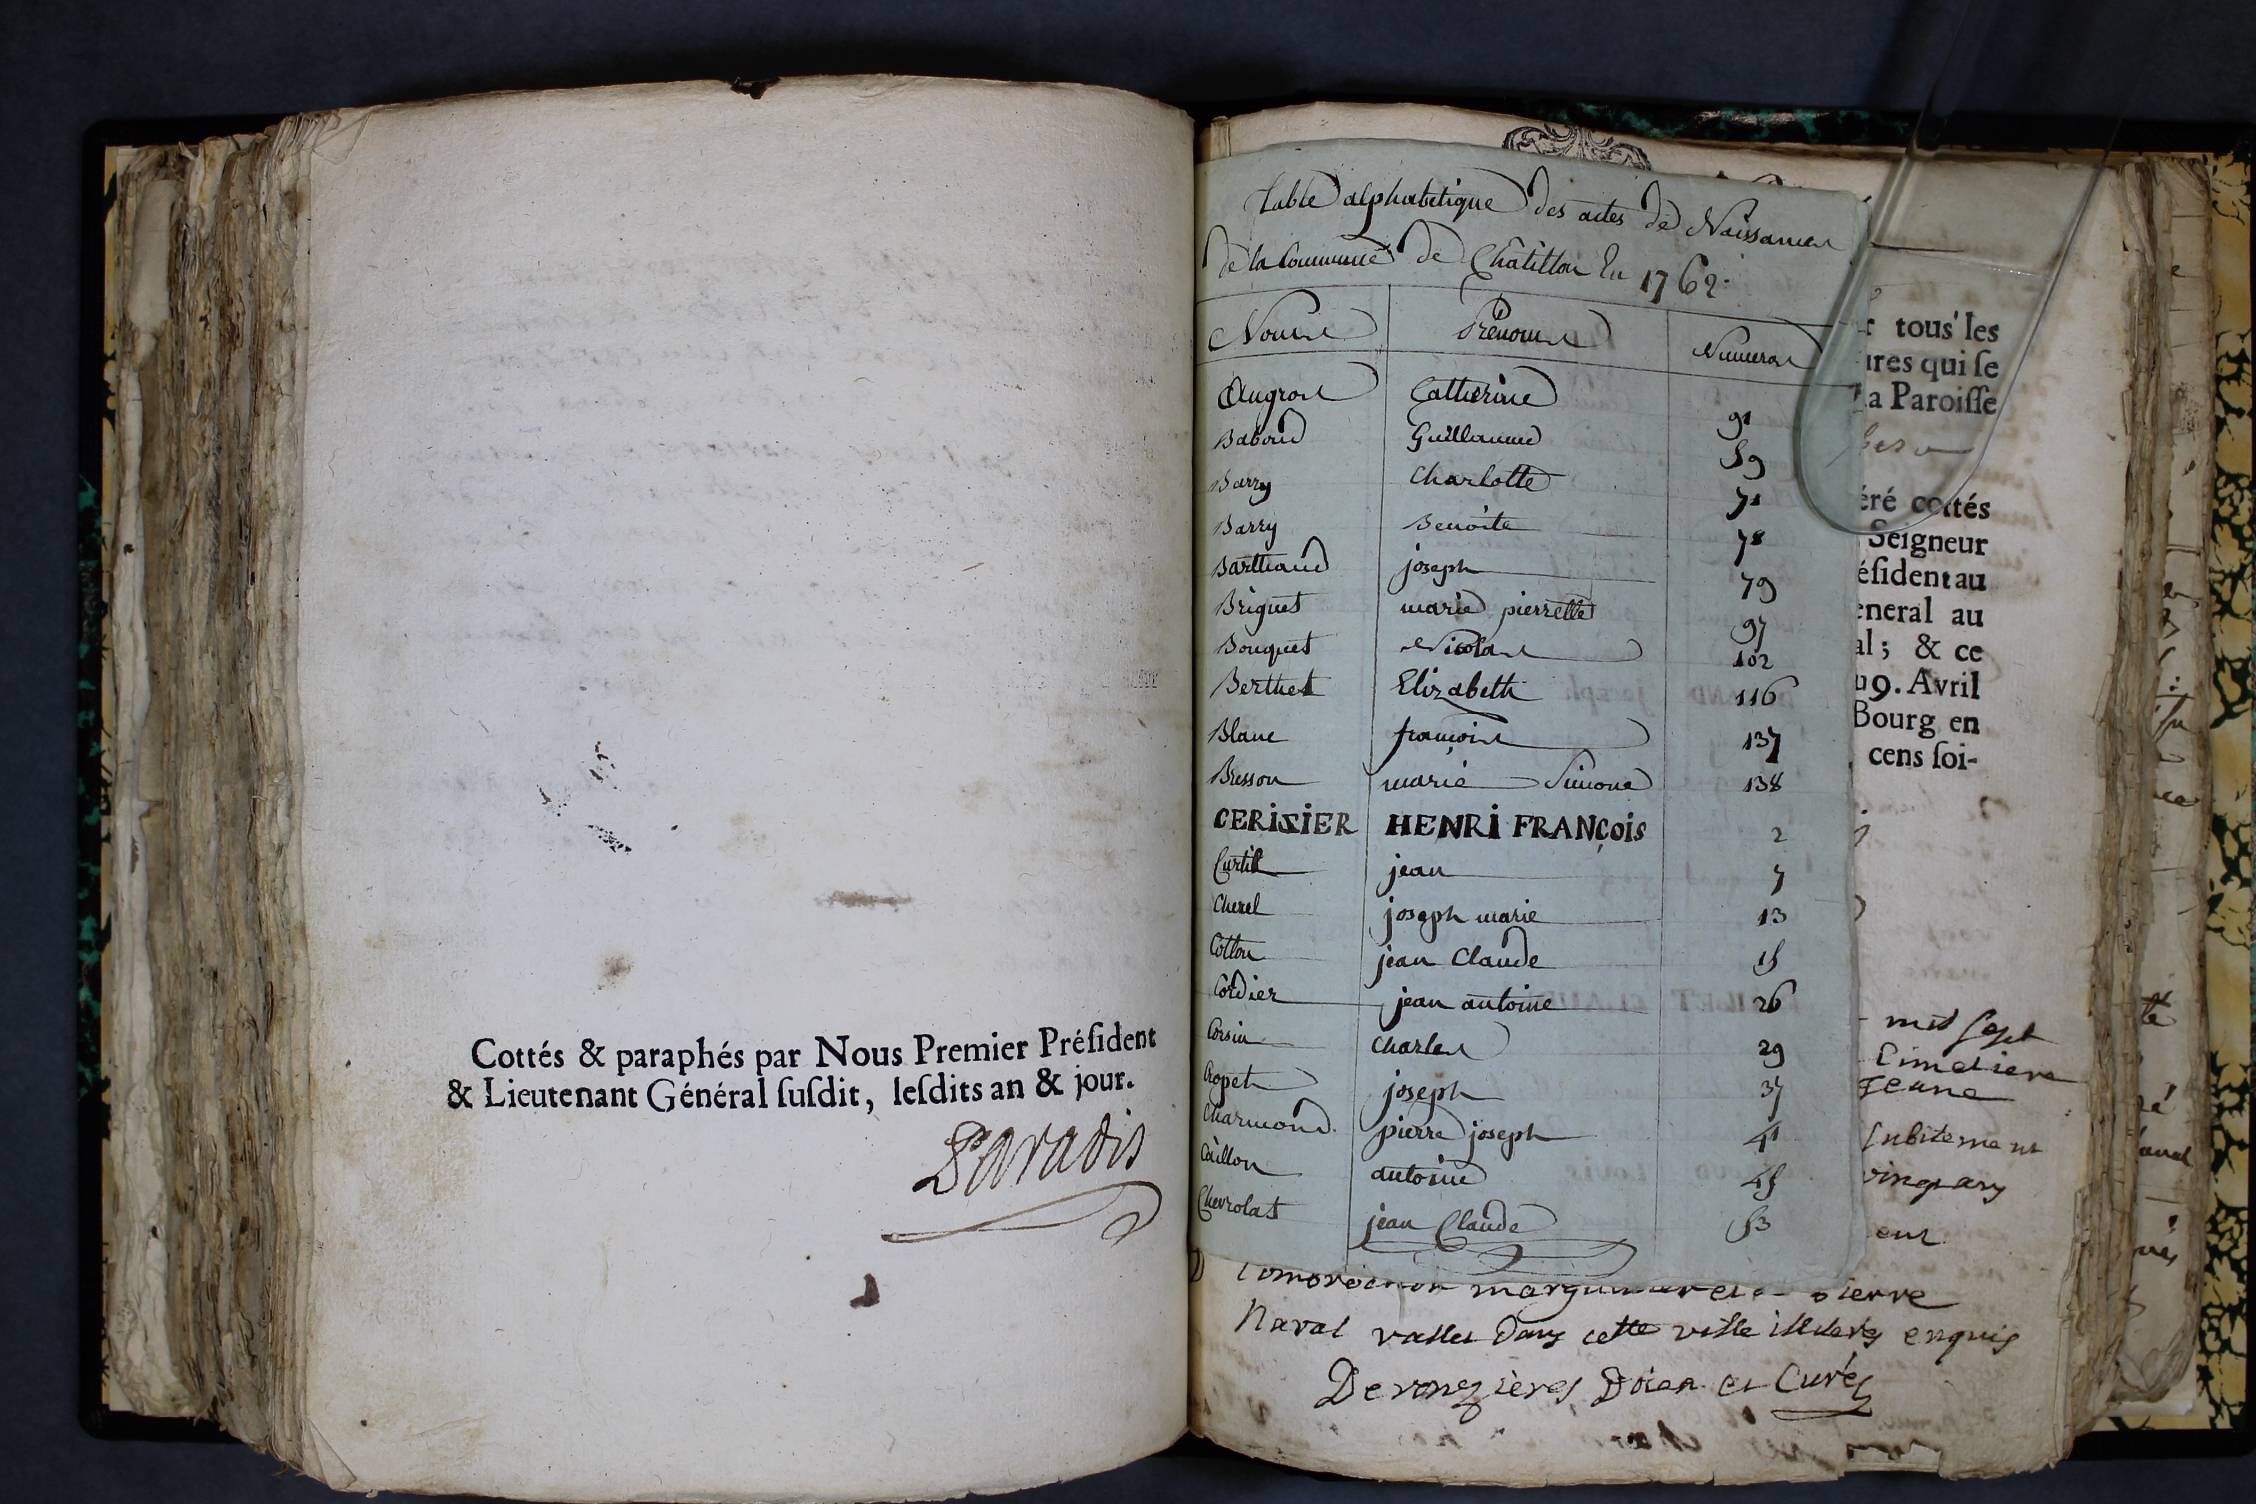 Cottés & paraphés par Nous Premier Préſident
& Lieutenant Général ſuſdit, leſdits an & jour.
Paradis
Table alphabétique des actes de Naissances
de la Commune de Châtillon En 1762.
Noms Prénoms Numeros
Augros Catherine 91
Baboud Guillaume 59
Barry Charlotte 71
Barry Benoite 78
Bartheaud joseph 79
Briguet marie pierrette 97
Bouquet Nicolas 102
Berthet Elizabeth 116
Blanc françois 137
Bresson marie Simone 138
CERISIER HENRI FRANÇois 2
Curtil jean 7
Churel joseph marie 13
Cotton jean Claude 15
Cordier jean antoine 26
Corsin Charles 29
Chopet joseph 37
Charmond pierre joseph 41
Caillon antoine 45
Chevrolat jean Claude 53
tous les
ures qui ſe
la Paroiſſe
éré cottés
Seigneur
éſident au
eneral au
al; & ce
u 9. Avril
Bourg en
cens ſoi-
mil sept
Cimetiere
jeune
subitement
eur
marguillier et pierre
Naval vallet dans cette ville illiterés enquis
Devenzières Doien et Curé